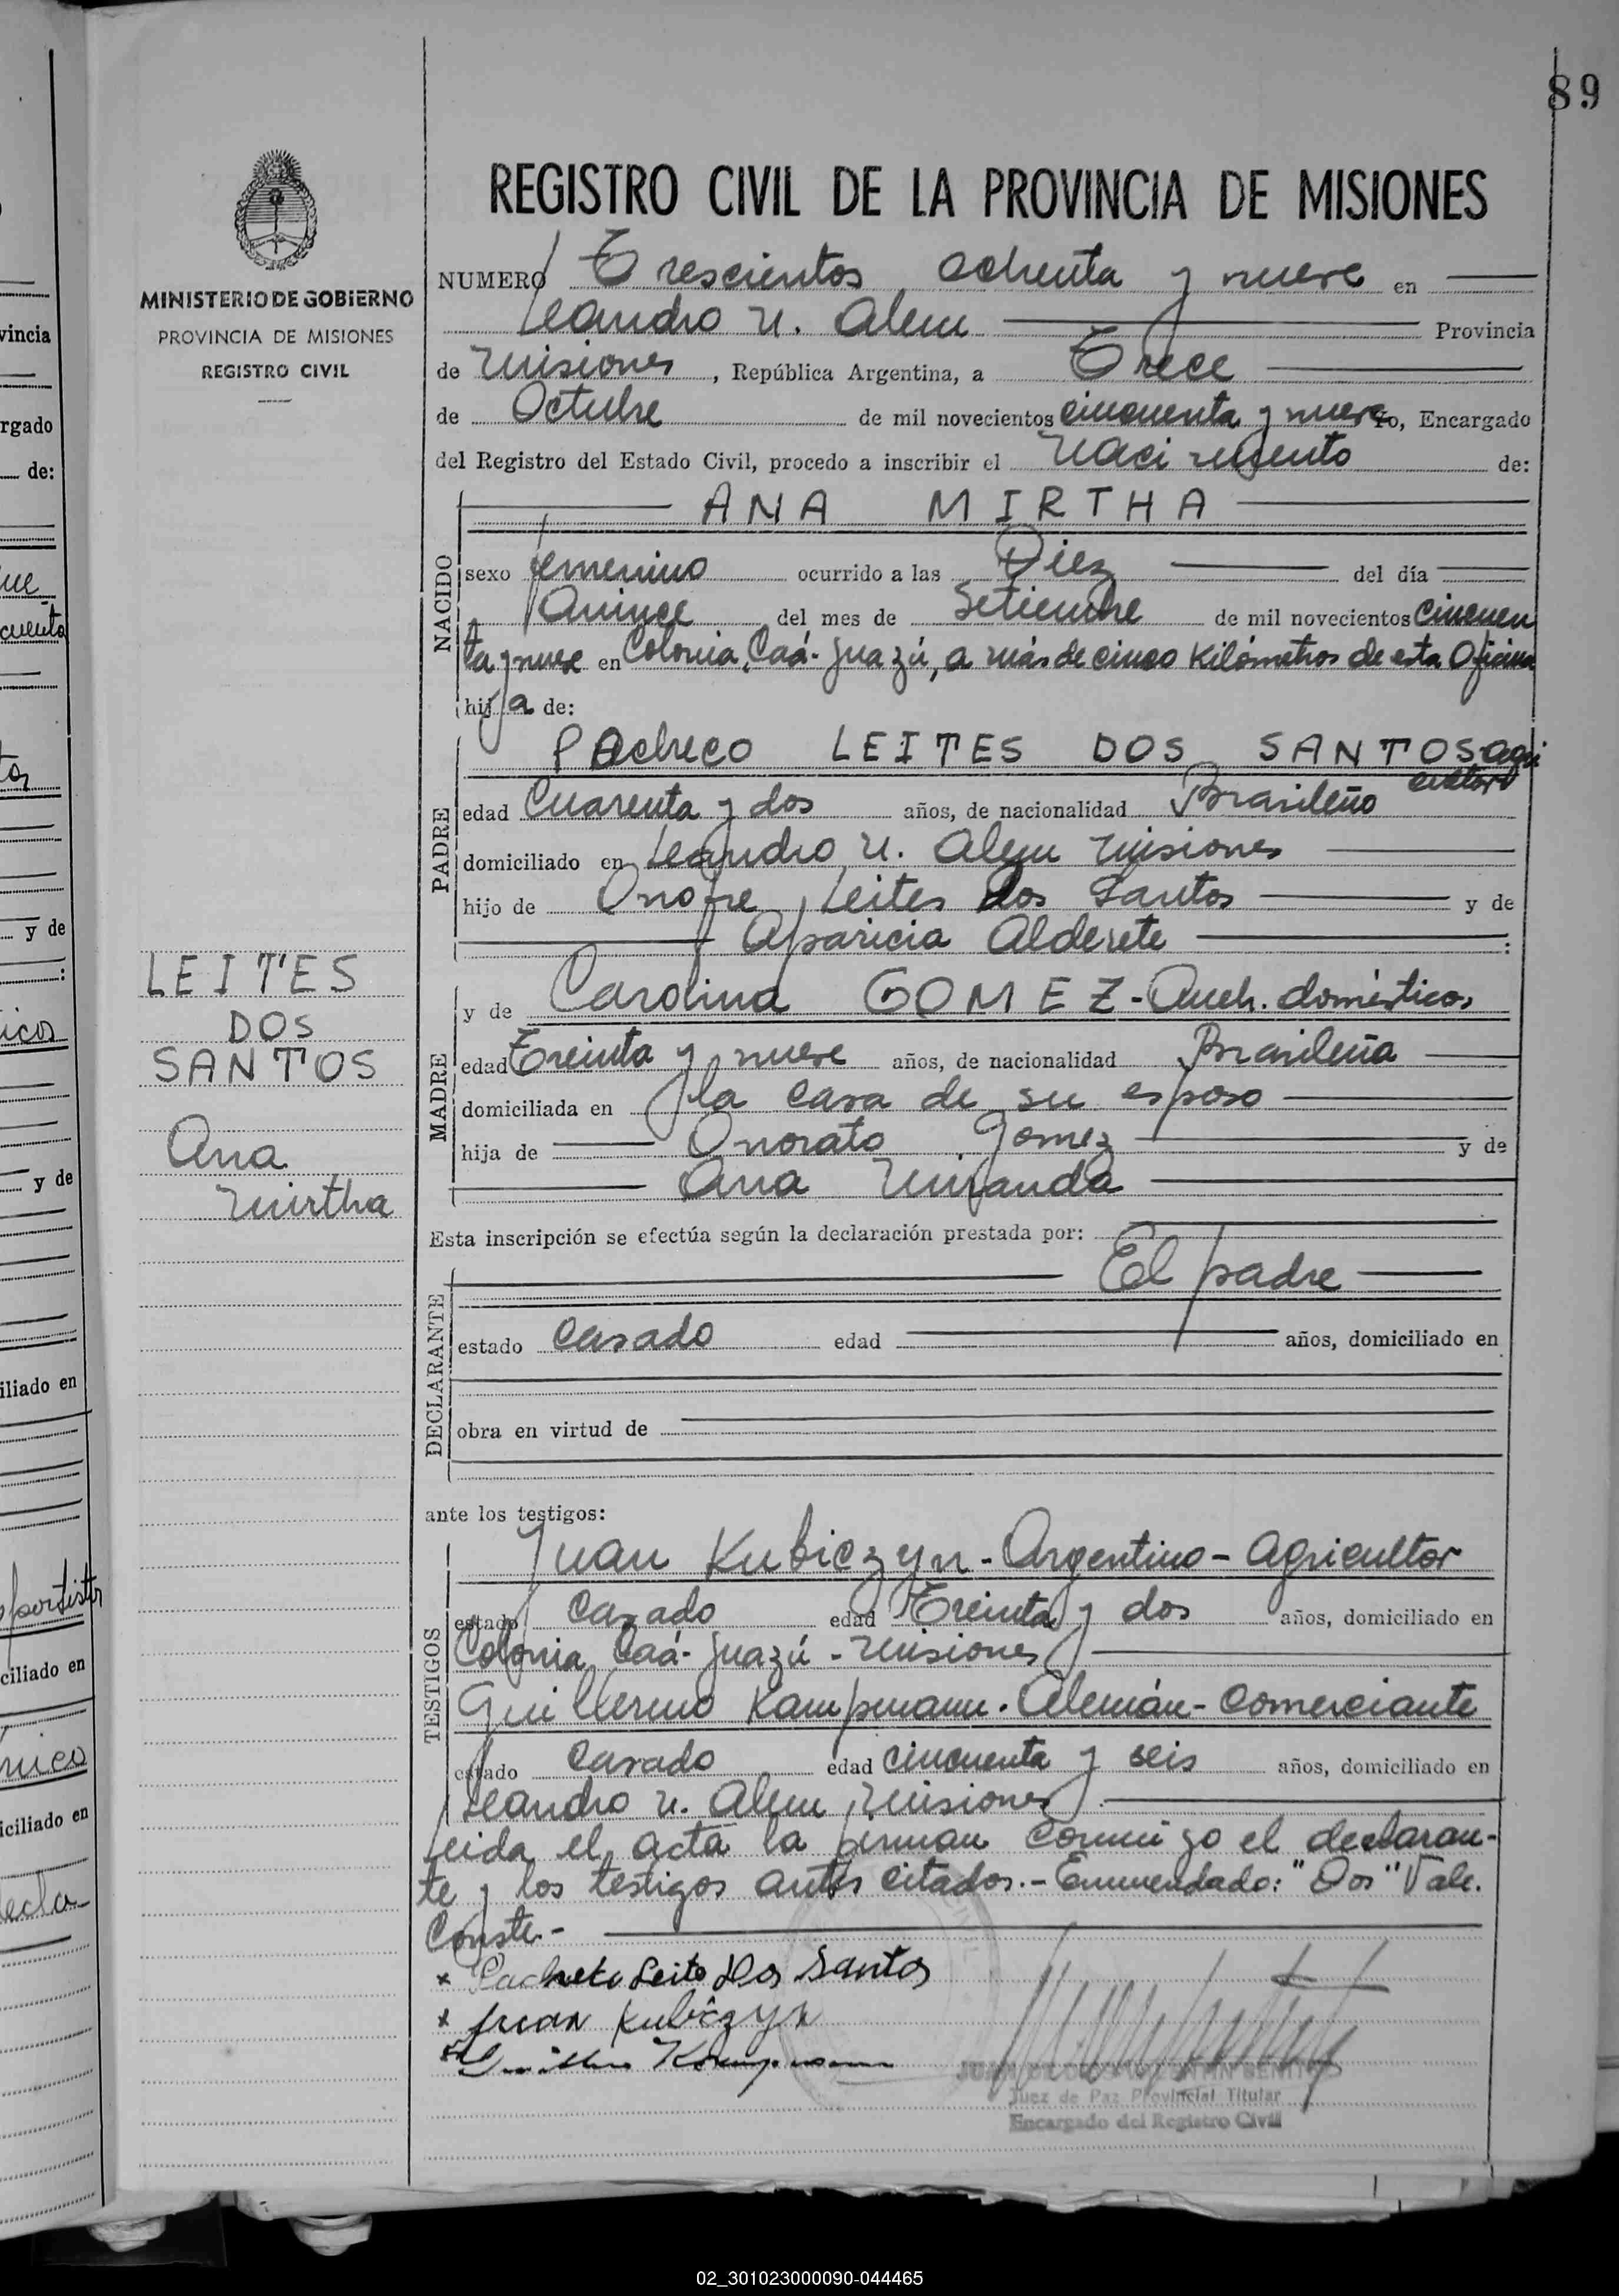 89
MINISTERIO DE GOBIERNO
PROVINCIA DE MISIONES
REGISTRO CIVIL
REGISTRO CIVIL DE LA PROVINCIA DE MISIONES
NUMERO Trescientos ochenta y nueve en
Leandro N. Alem Provincia
de Misiones, República Argentina, a Trece
de Octubre de mil novecientos cincuenta y nueve Yo, Encargado
del Registro del Estado Civil, procedo a inscribir el Nacimiento de:
NACIDO
ANA MIRTHA
sexo femenino ocurrido a las Diez del día
Quince del mes de Setiembre de mil novecientos cincuen
ta y nueve en Colonia Caá-Guazú, a más de cinco Kilómetros de esta Oficina
hija de:
PADRE
Pacheco LEITES DOS SANTOS agri
cultor
edad Cuarenta y dos años, de nacionalidad Brasileño
domiciliado en Leandro N. Alem Misiones
hijo de Onofre Leites Dos Santos y de
Aparicia Alderete :
MADRE
y de Carolina GOMEZ - Queh. domésticos
edad Treinta y nueve años, de nacionalidad Brasileña
domiciliada en la casa de su esposo
hija de Onorato Gomez y de
Ana Miranda
LEITES
DOS
SANTOS
Ana
Mirtha
Esta inscripción se efectúa según la declaración prestada por:
DECLARANTE
El padre
estado Casado edad años, domiciliado en
obra en virtud de
ante los testigos:
TESTIGOS
Juan Kubiczyn - Argentino - Agricultor
estado Casado edad Treinta y dos años, domiciliado en
Colonia Caá-Guazú - Misiones
Guillermo Kampmann - Alemán - Comerciante
estado Casado edad cincuenta y seis años, domiciliado en
Leandro N. Alem Misiones
Leida el acta la firman conmigo el declaran-
te y los testigos antes citados.- Enmendado: "Dos" Vale.
Conste.-
x Pacheko Leite Dos Santos
x Juan Kubiczyn
x Guillermo Kampmann
Juez de Paz Provincial Titular
Encargado del Registro Civil
02_301023000090-044465